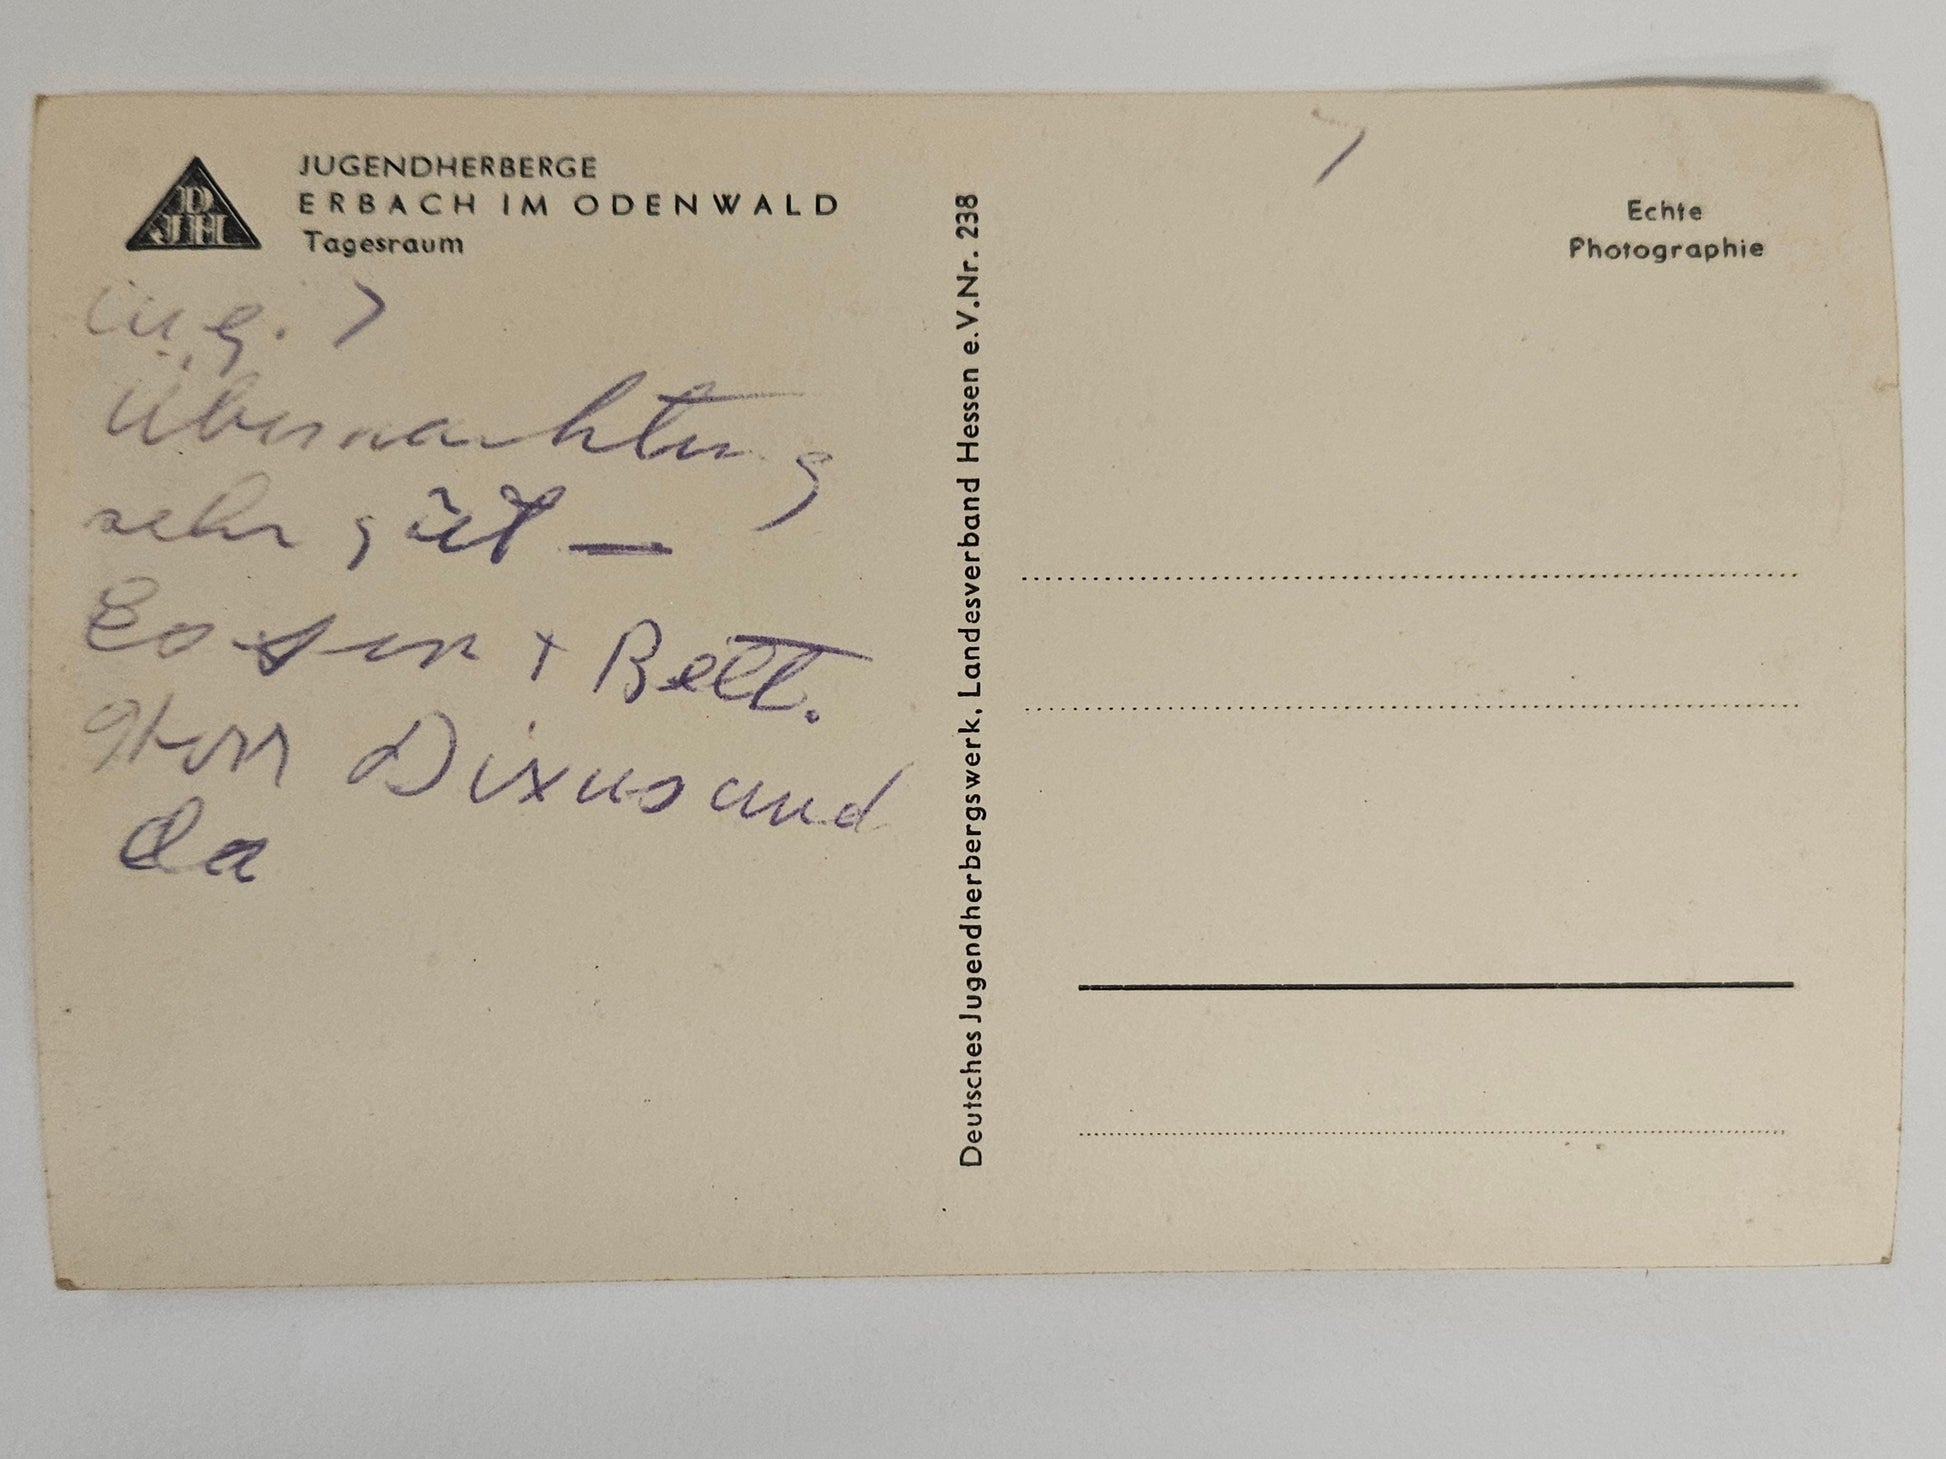 DJH
JUGENDHERBERGE
ERBACH IM ODENWALD
Tagesraum
Übernachtung
sehr gut —
Essen + Bett.
da
Deutsches Jugendherbergswerk, Landesverband Hessen e.V. Nr. 238
Echte
Photographie